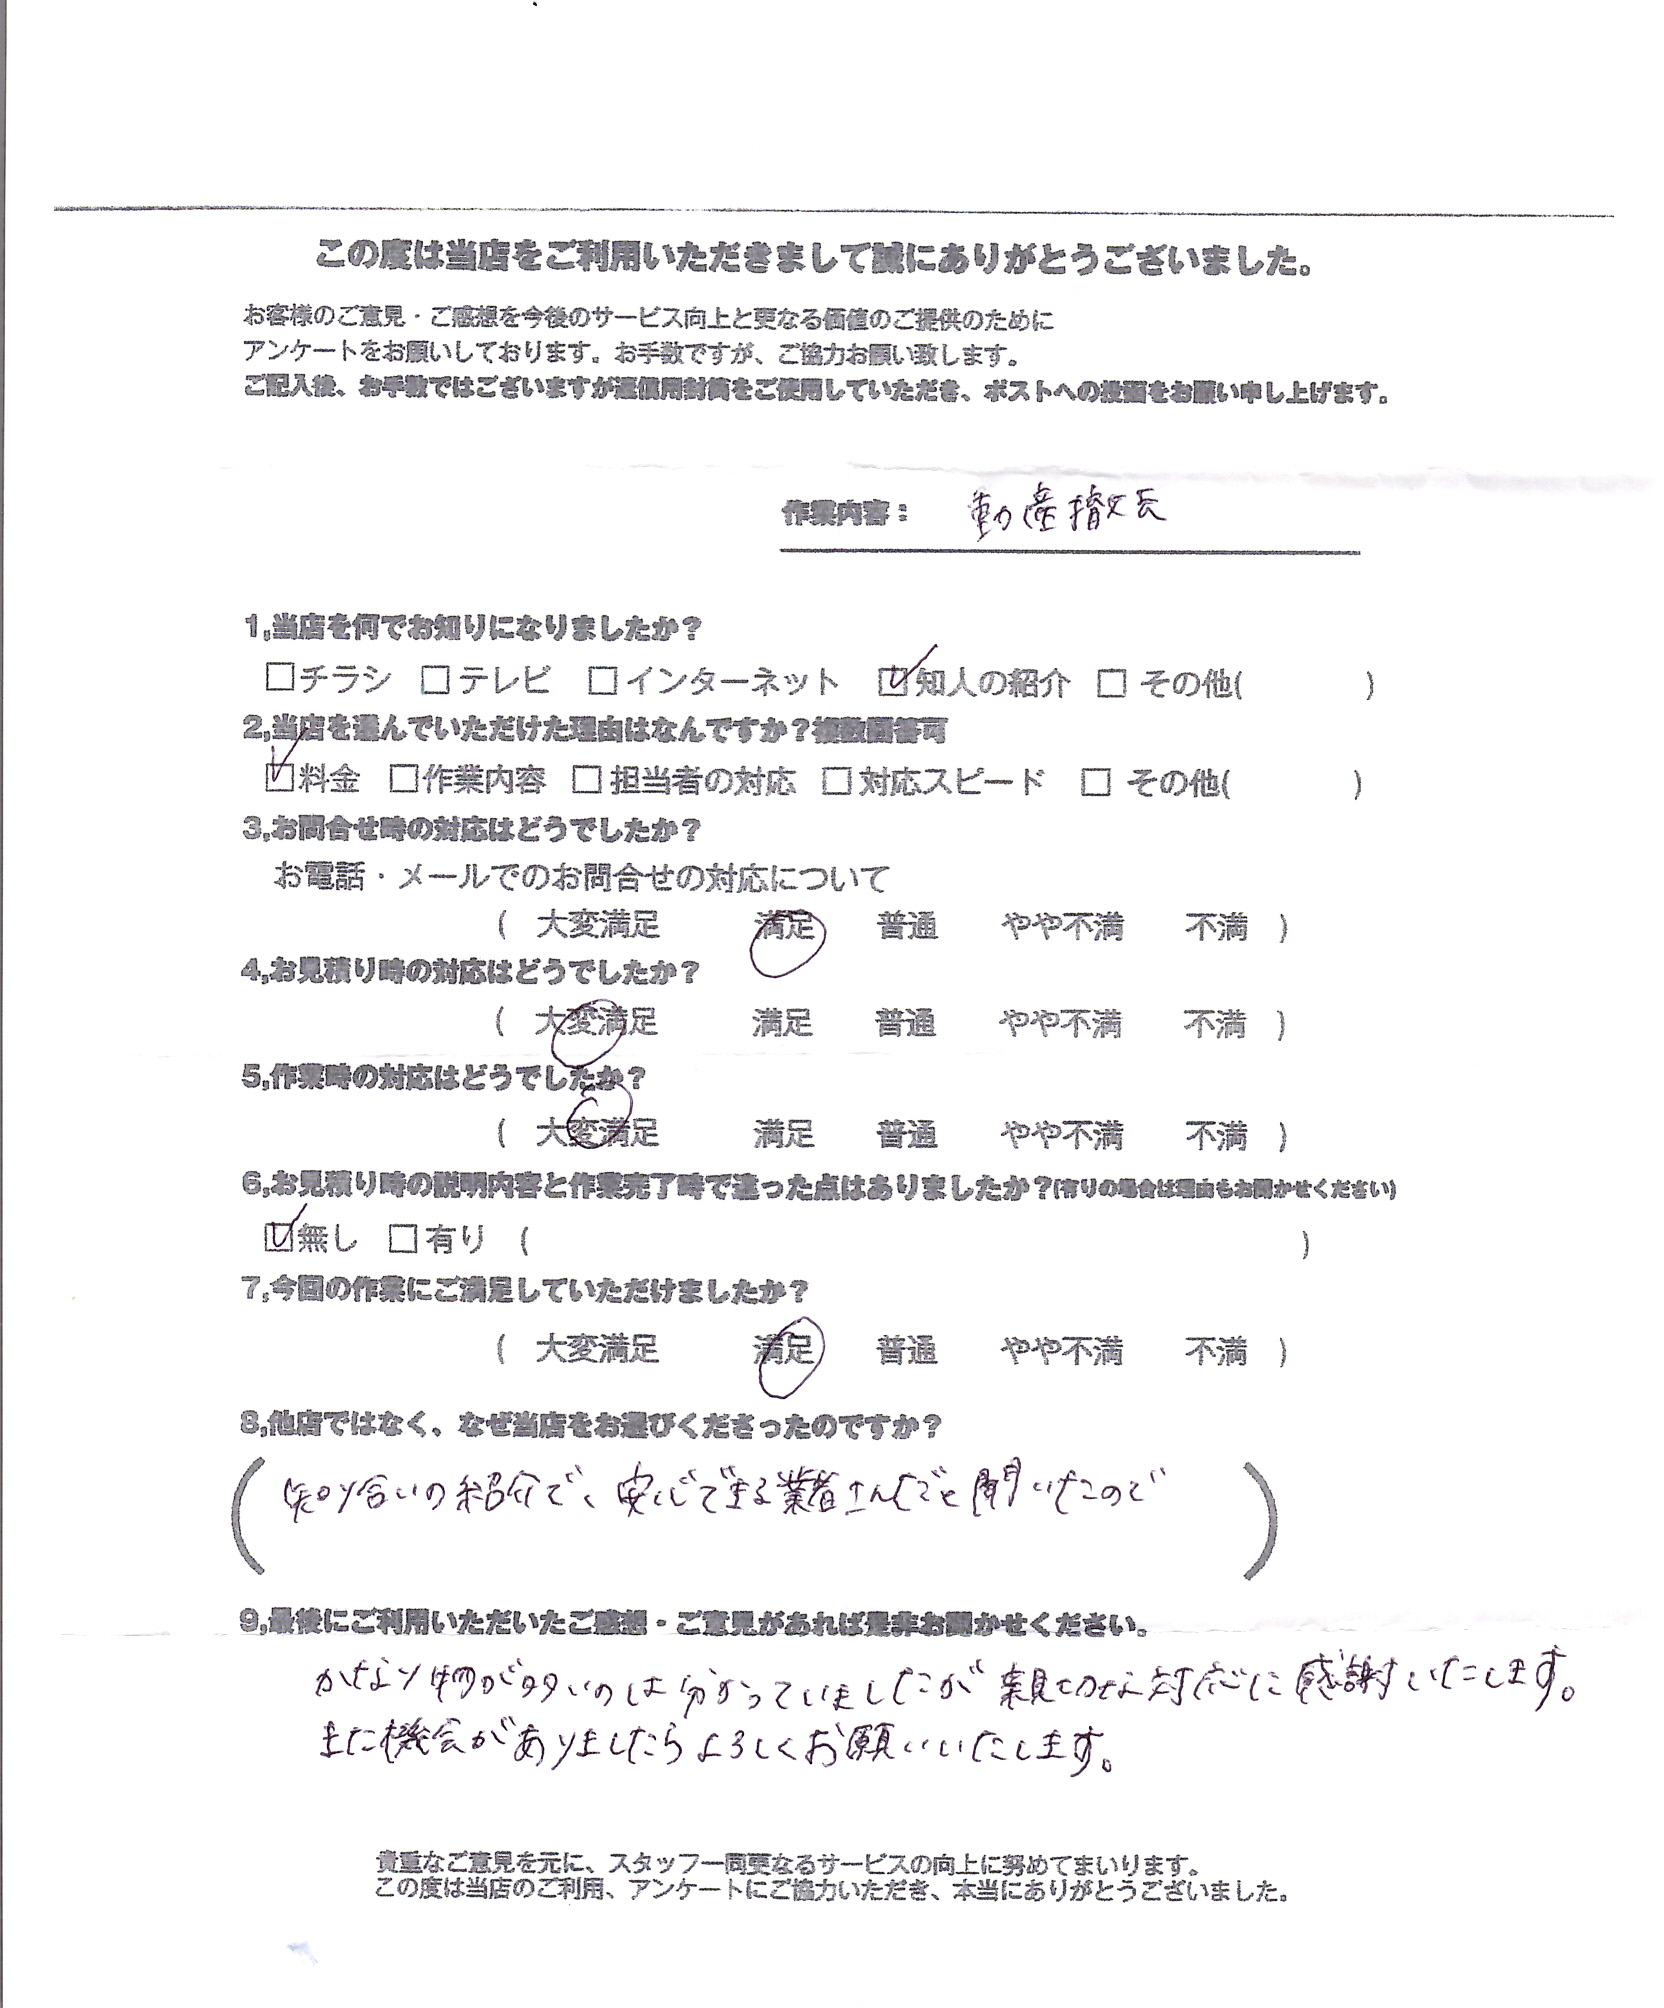 この度は当店をご利用いただきまして誠にありがとうございました。
お客様のご意見・ご感想を今後のサービス向上と更なる価値のご提供のために
アンケートをお願いしております。お手数ですが、ご協力お願い致します。
ご記入後、お手数ではございますが返信用封筒をご使用していただき、ポストへの投函をお願い申し上げます。
作業内容： 動産撤去
1,当店を何でお知りになりましたか？
□チラシ □テレビ □インターネット ☑知人の紹介 □ その他( )
2,当店を選んでいただけた理由はなんですか？複数回答可
☑料金 □作業内容 □担当者の対応 □対応スピード □ その他( )
3,お問合せ時の対応はどうでしたか？
お電話・メールでのお問合せの対応について
( 大変満足 満足 普通 やや不満 不満 )
4,お見積り時の対応はどうでしたか？
( 大変満足 満足 普通 やや不満 不満 )
5,作業時の対応はどうでしたか？
( 大変満足 満足 普通 やや不満 不満 )
6,お見積り時の説明内容と作業完了時で違った点はありましたか？(有りの場合は理由もお聞かせください)
☑無し □有り ( )
7,今回の作業にご満足していただけましたか？
( 大変満足 満足 普通 やや不満 不満 )
8,他店ではなく、なぜ当店をお選びくださったのですか？
(知り合いの紹介で、安心できる業者さんだと聞いたので)
9,最後にご利用いただいたご感想・ご意見があれば是非お聞かせください。
かなり物が多いのは分かっていましたが親切な対応に感謝いたします。
また機会がありましたらよろしくお願いいたします。
貴重なご意見を元に、スタッフ一同更なるサービスの向上に努めてまいります。
この度は当店のご利用、アンケートにご協力いただき、本当にありがとうございました。